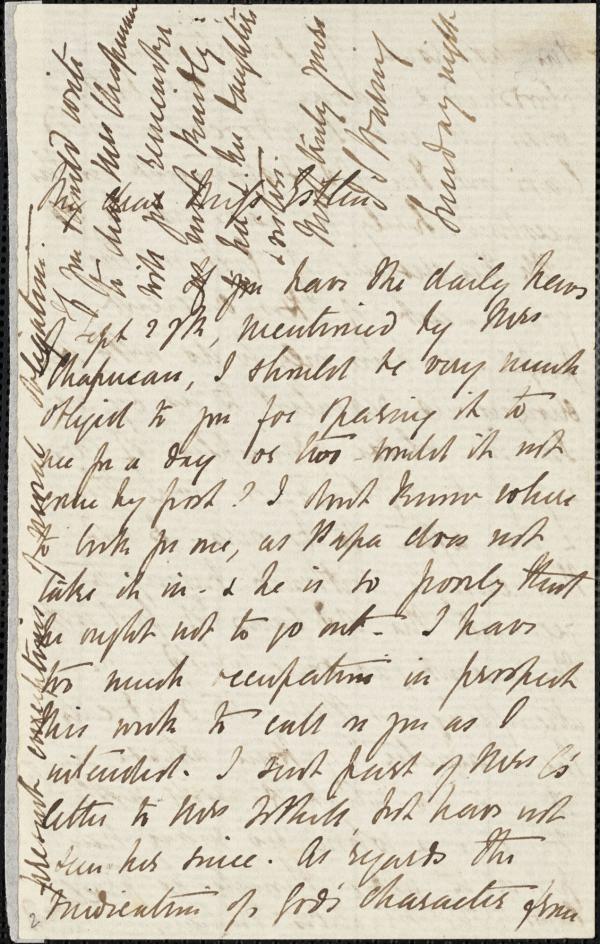 My dear Miss Estlin
If you have the daily news
of Sept 27th, mentioned by Mrs
Chapman, I should be very much
obliged to you for sparing it to
me for a day or two - would it not
come by post? I don't know where
to look for one, as Papa does not
take it in - & he is so poorly that
he ought not to go out - I have
too much occupation in prospect
this week to call on you as I
intended. I sent part of Mrs C's
letter to Mrs but have not
seen her since. As regards the
vindication of God's character from
present conceptions of moral obligation.
If you should write
to dear Mrs Chapman
will you remember
me most kindly
to her & her daughters
& sisters.
Most truly yours
Sunday night
2